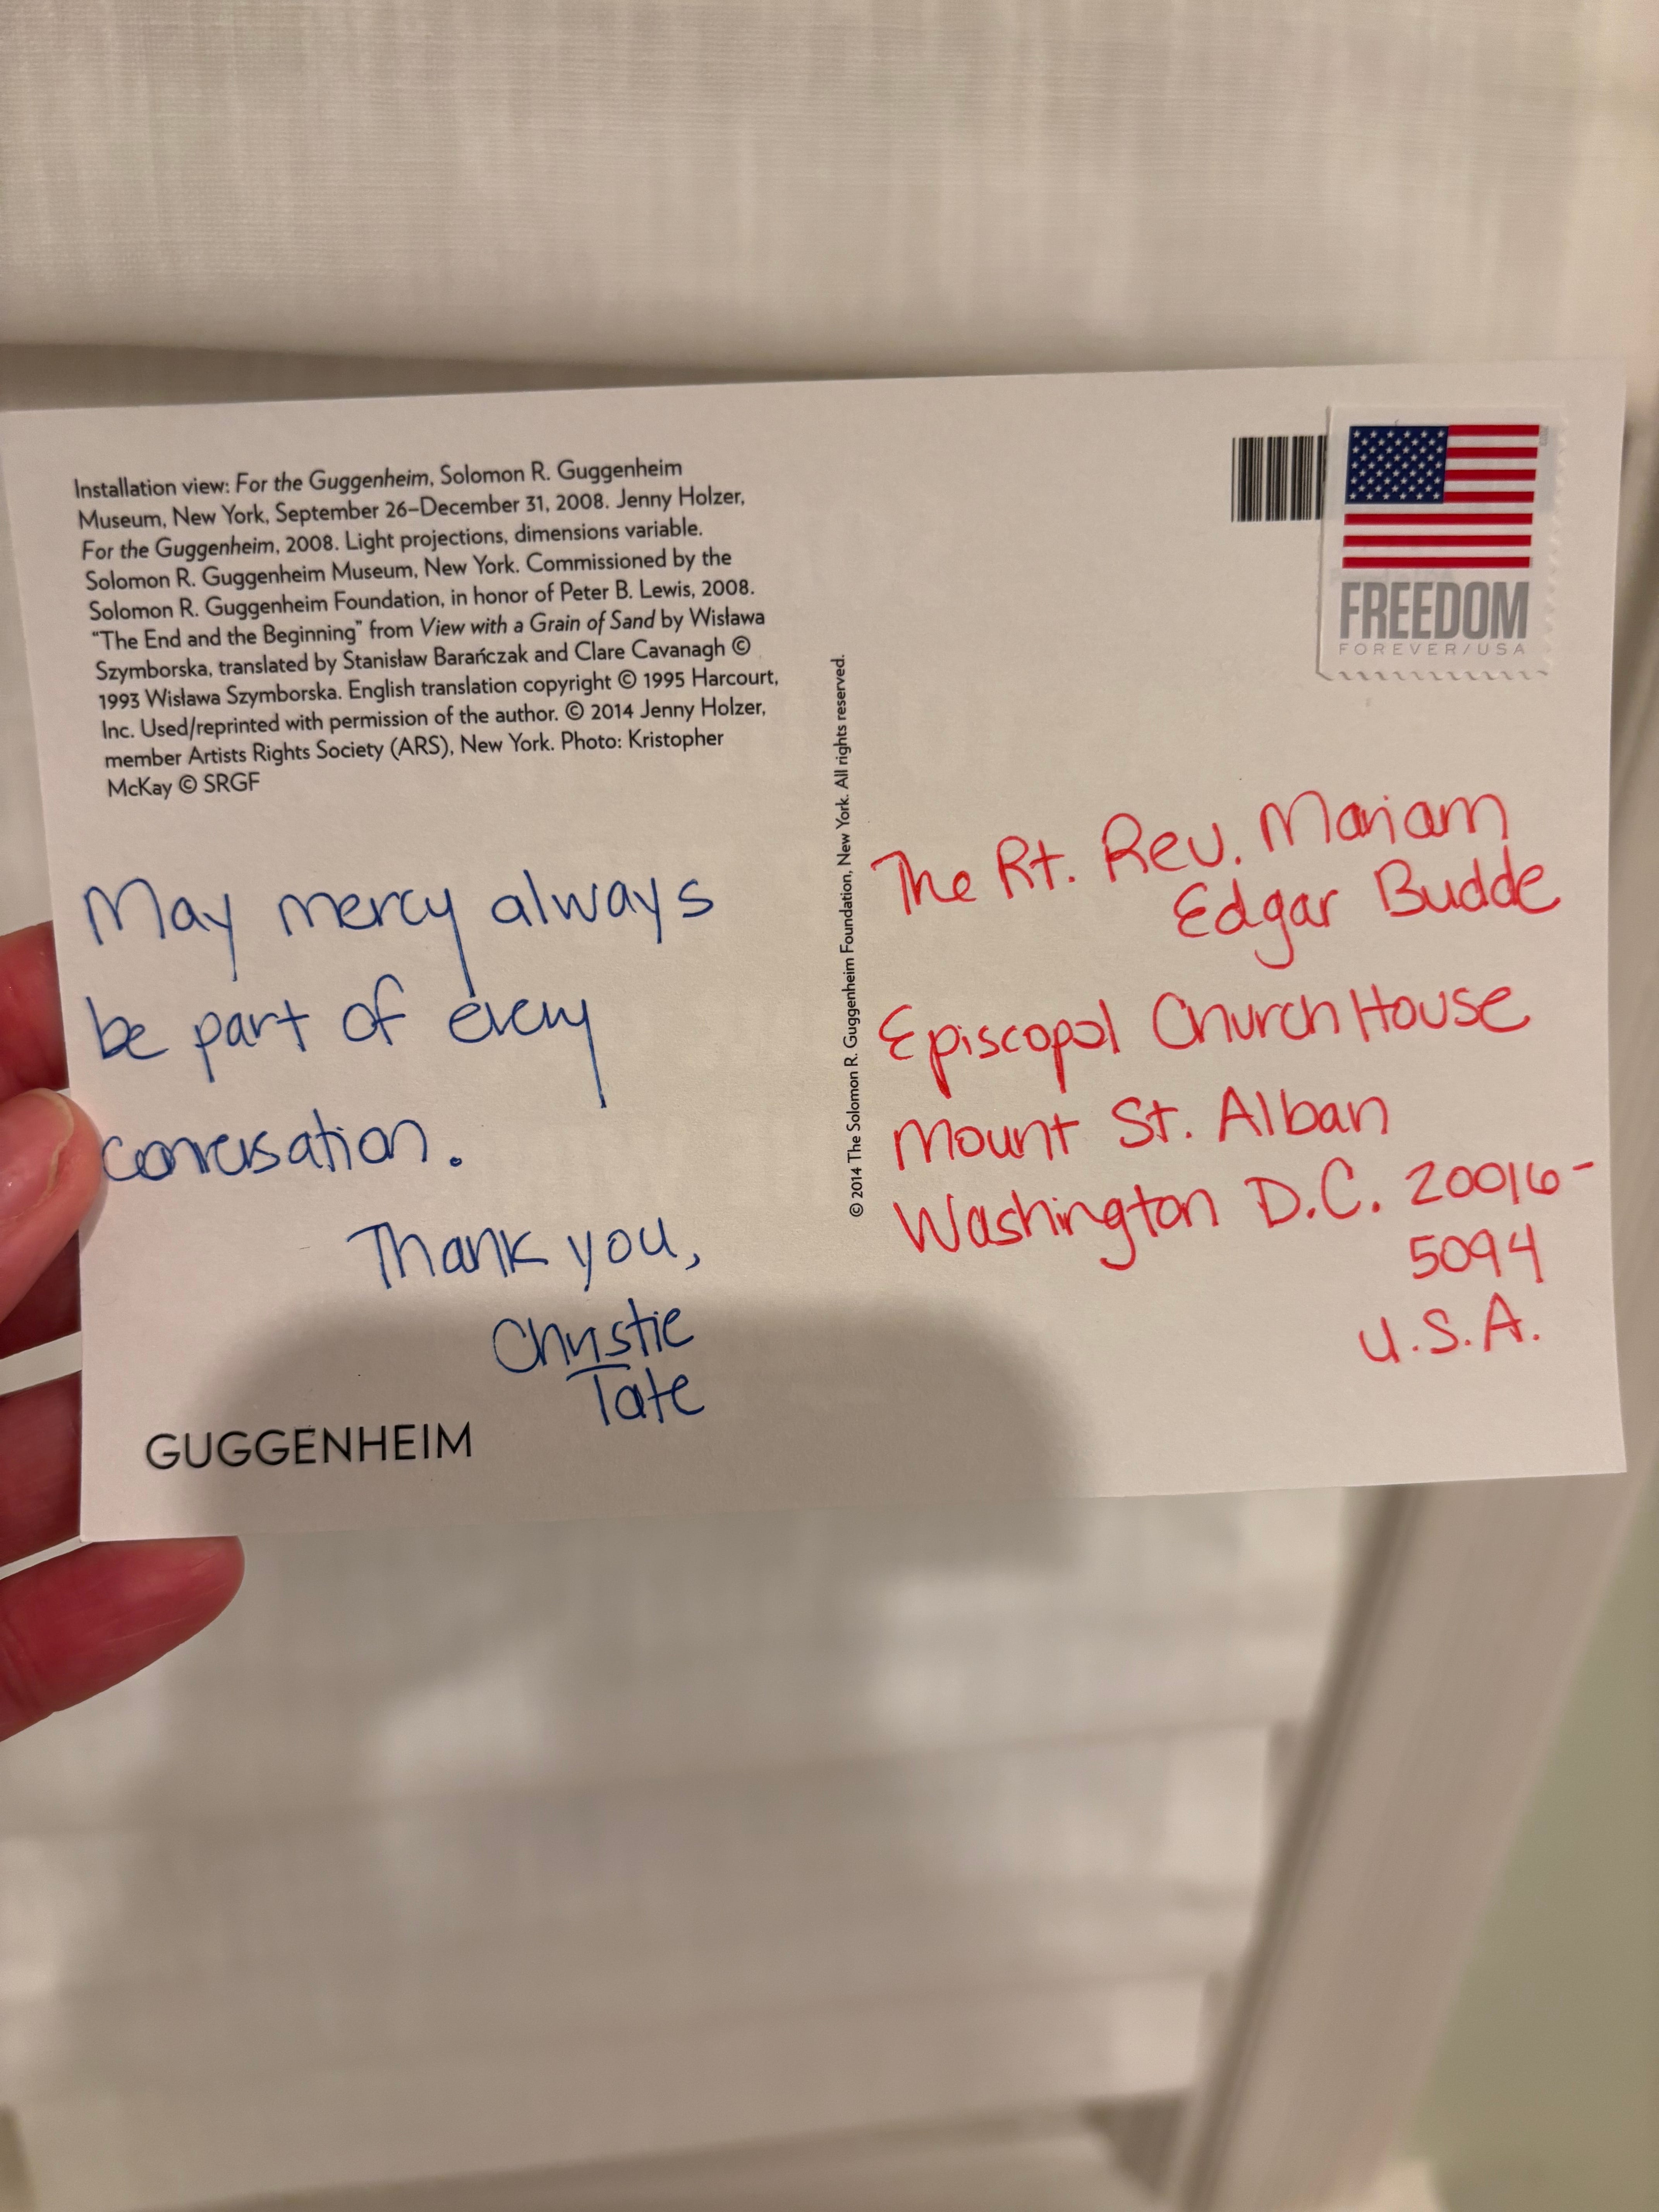 Installation view: For the Guggenheim, Solomon R. Guggenheim
Museum, New York, September 26–December 31, 2008. Jenny Holzer,
For the Guggenheim, 2008. Light projections, dimensions variable.
Solomon R. Guggenheim Museum, New York. Commissioned by the
Solomon R. Guggenheim Foundation, in honor of Peter B. Lewis, 2008.
“The End and the Beginning” from View with a Grain of Sand by Wisława
Szymborska, translated by Stanisław Barańczak and Clare Cavanagh ©
1993 Wisława Szymborska. English translation copyright © 1995 Harcourt,
Inc. Used/reprinted with permission of the author. © 2014 Jenny Holzer,
member Artists Rights Society (ARS), New York. Photo: Kristopher
McKay © SRGF
May mercy always
be part of every
conversation.
Thank you,
Christie
Tate
GUGGENHEIM
© 2014 The Solomon R. Guggenheim Foundation, New York. All rights reserved.
FREEDOM
FOREVER/USA
The Rt. Rev. Mariam
Edgar Budde
Episcopal Church House
Mount St. Alban
Washington D.C. 20016-
5094
U.S.A.